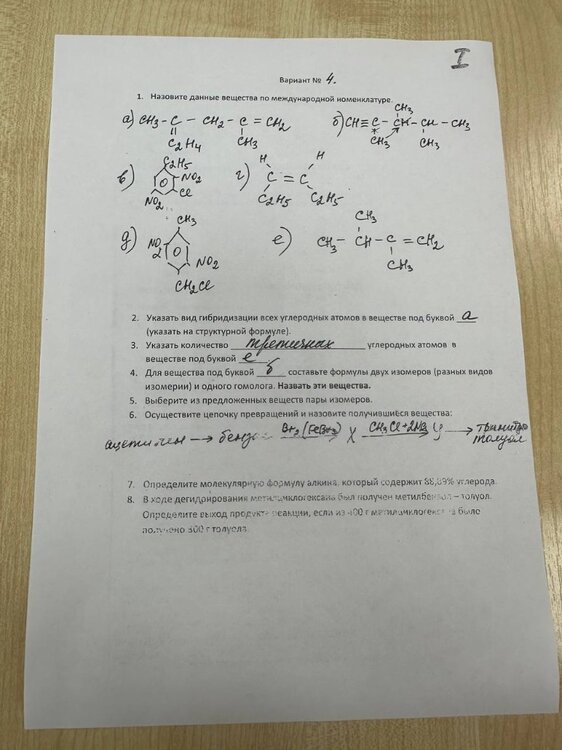 I
Вариант № 4.
1. Назовите данные вещества по международной номенклатуре.
а) CH3 - C - CH2 - C = CH2
C2H4 CH3
б) CH≡C - CH - CH - CH3
CH3
CH3 CH3
в) C2H5
NO2
Cl
NO2
г) H H
C = C
C2H5 C2H5
д) CH3
NO2
NO2
CH2Cl
е) CH3
CH3 - CH - C = CH2
CH3
2. Указать вид гибридизации всех углеродных атомов в веществе под буквой а
(указать на структурной формуле).
3. Указать количество третичных углеродных атомов в
веществе под буквой е
4. Для вещества под буквой б составьте формулы двух изомеров (разных видов
изомерии) и одного гомолога. Назвать эти вещества.
5. Выберите из предложенных веществ пары изомеров.
6. Осуществите цепочку превращений и назовите получившиеся вещества:
ацетилен → бензол Br2 (FeBr3) X CH3Cl + 2Na У → тринитро
толуол
7. Определите молекулярную формулу алкина, который содержит 88,89% углерода.
8. В ходе дегидрирования метилциклогексана был получен метилбензол – толуол.
Определите выход продукта реакции, если из 400 г метилциклогексана было
получено 300 г толуола.